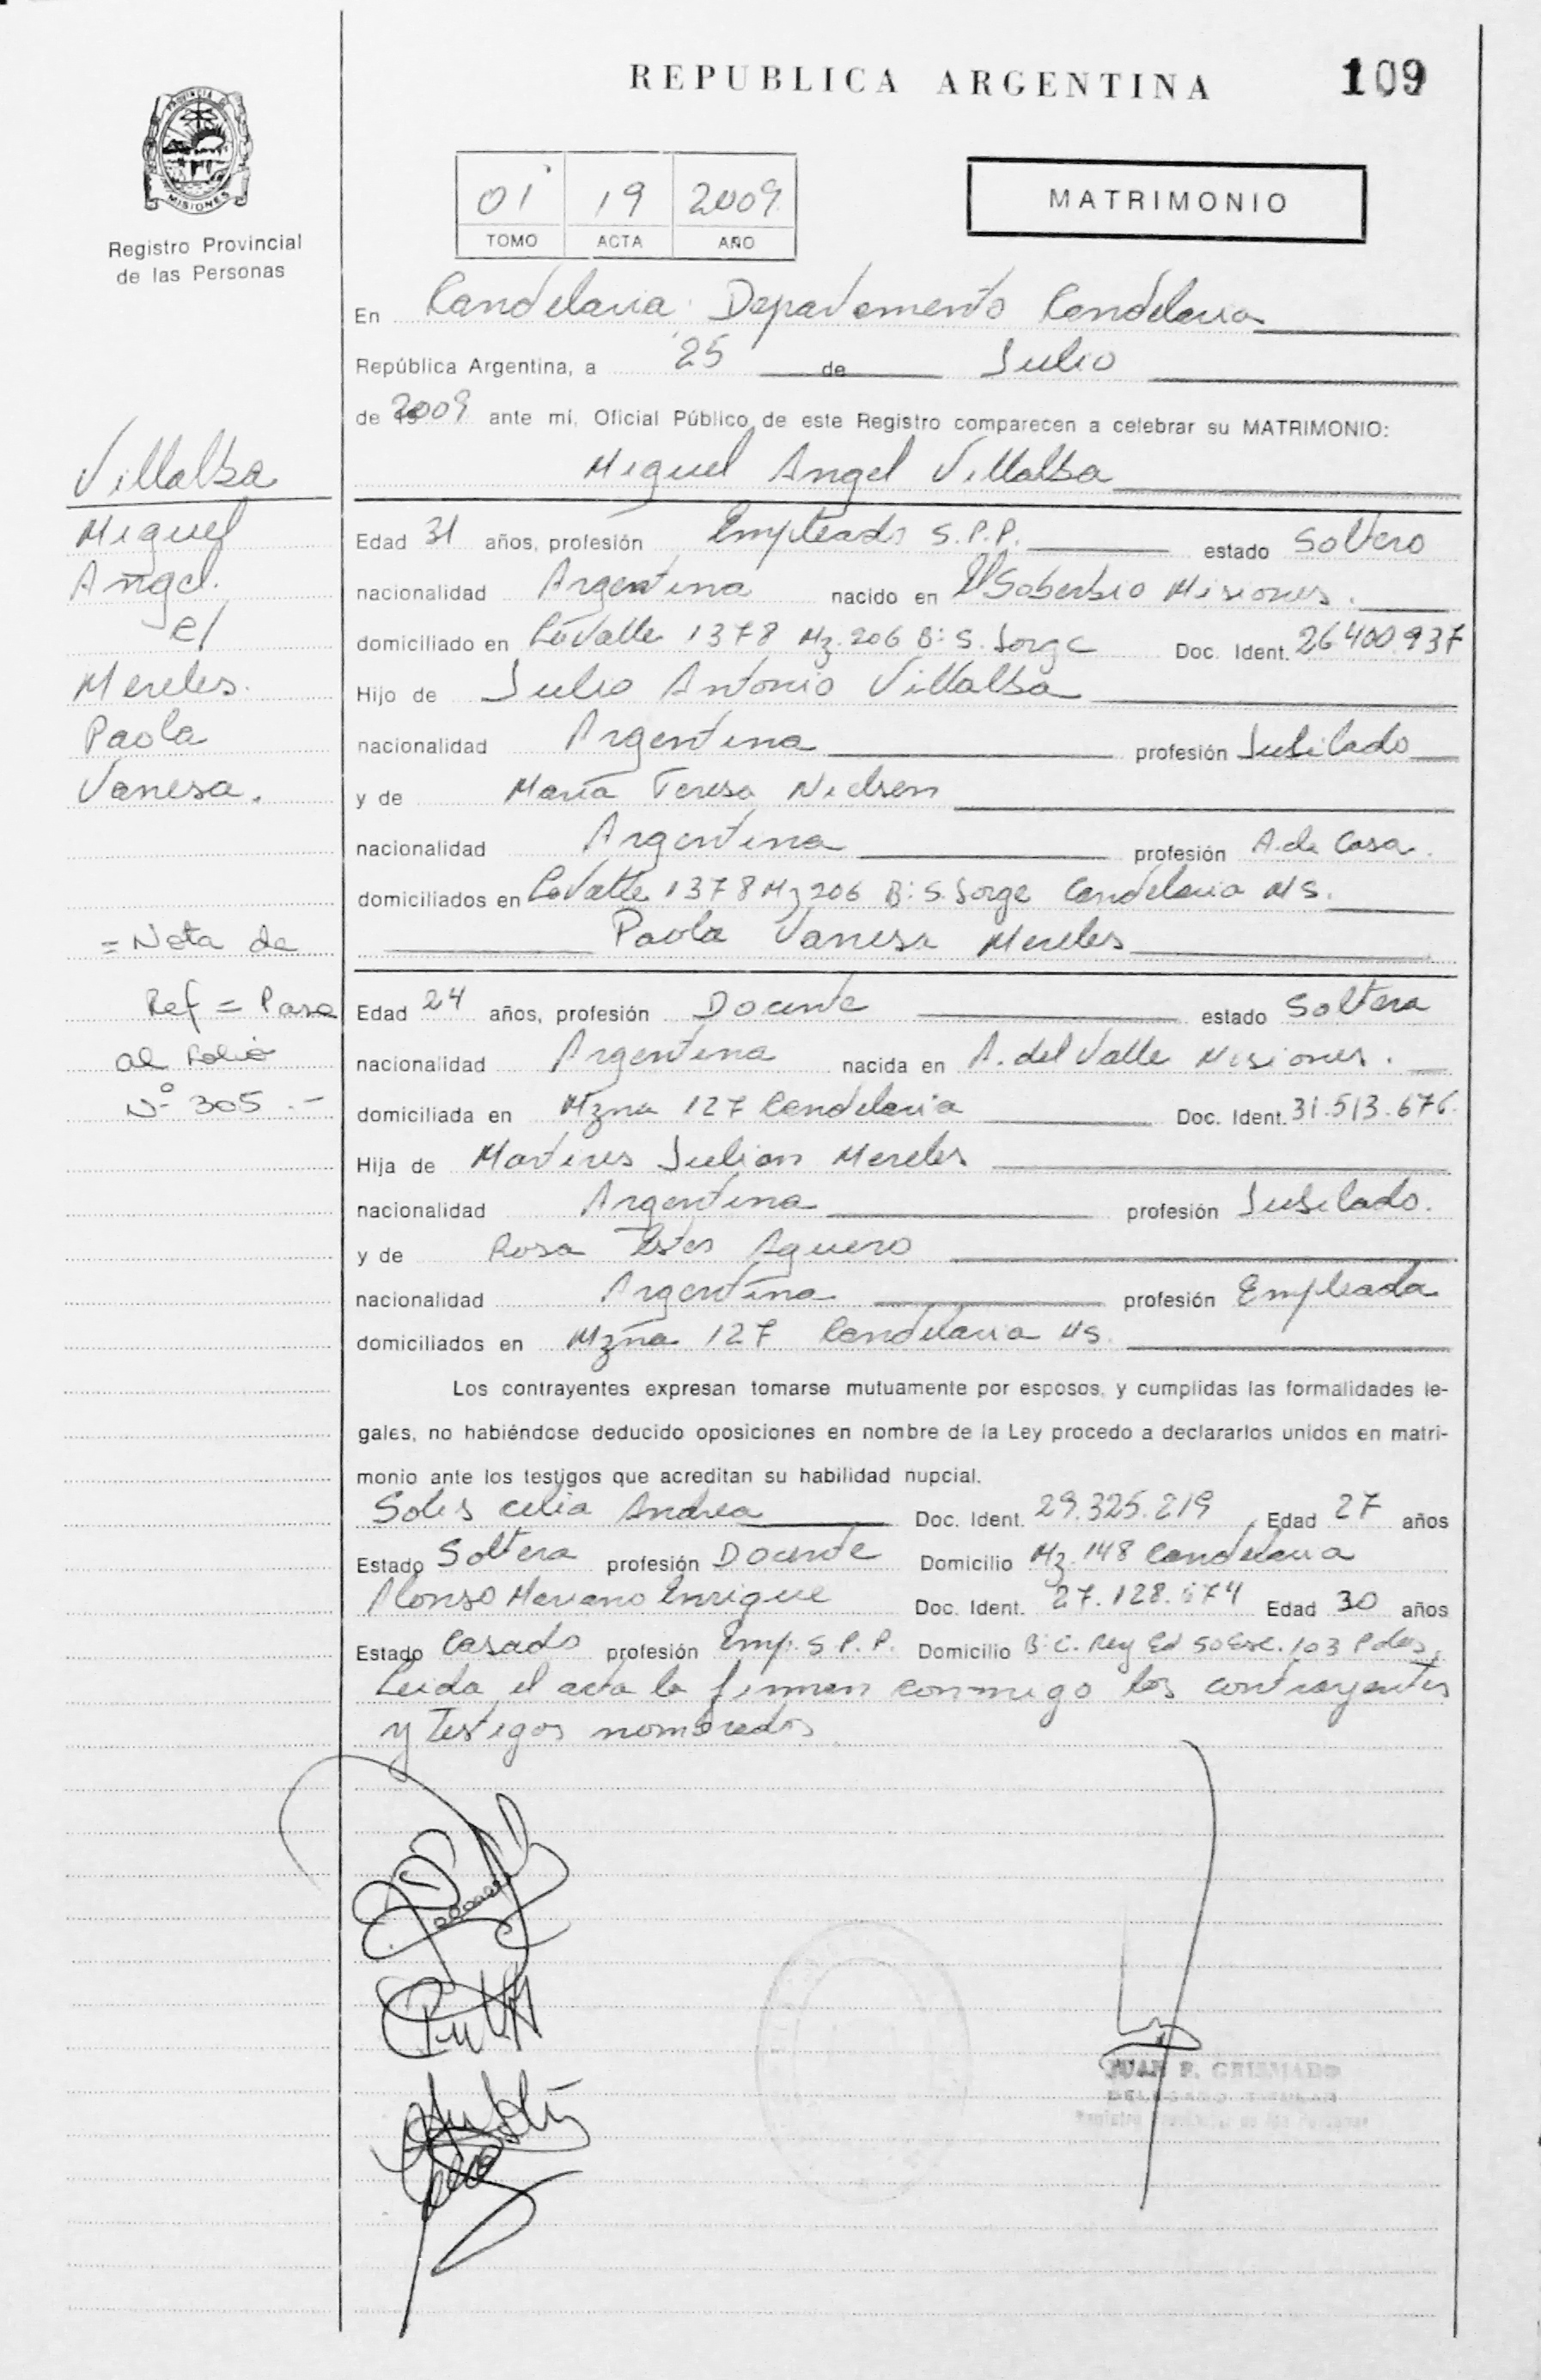 REPUBLICA ARGENTINA
109
PROVINCIA DE MISIONES
Registro Provincial
de las Personas
01 19 2009
TOMO ACTA AÑO
MATRIMONIO
En Candelaria Departamento Candelaria
República Argentina, a 25 de Julio
de 2009 ante mi, Oficial Público de este Registro comparecen a celebrar su MATRIMONIO:
Miguel Angel Villalba
Edad 31 años, profesión Empleado S.P.P. estado Soltero
nacionalidad Argentina nacido en El Soberbio Misiones.
domiciliado en Lavalle 1378 Mz. 206 B: S. Jorge Doc. Ident. 26.400.937
Hijo de Julio Antonio Villalba
nacionalidad Argentina profesión Jubilado
y de María Teresa Nielsen
nacionalidad Argentina profesión A. de Casa.
domiciliados en Lavalle 1378 Mz 206 B: S. Jorge Candelaria Ms.
Paola Vanesa Mereles
Edad 24 años, profesión Docente estado Soltera
nacionalidad Argentina nacida en A. del Valle Misiones.
domiciliada en Mzna 127 Candelaria Doc. Ident. 31.513.676.
Hija de Martires Julian Mereles
nacionalidad Argentina profesión Jubilado.
y de Rosa Ester Aguero
nacionalidad Argentina profesión Empleada
domiciliados en Mzna 127 Candelaria Ms.
Los contrayentes expresan tomarse mutuamente por esposos, y cumplidas las formalidades le-
gales, no habiéndose deducido oposiciones en nombre de la Ley procedo a declararlos unidos en matri-
monio ante los testigos que acreditan su habilidad nupcial.
Solis Celia Andrea Doc. Ident. 29.325.219 Edad 27 años
Estado Soltera profesión Docente Domicilio Mz. 148 Candelaria
Alonso Mariano Enrique Doc. Ident. 27.128.674 Edad 30 años
Estado Casado profesión Emp. S.P.P. Domicilio B: C. Rey Ed 50 Esc. 103 Pdas.
Leida el acta la firman conmigo los contrayentes
y testigos nombrados
Villalba
Miguel
Angel.
c/
Mereles.
Paola
Vanesa.
= Nota de
Ref = Pasa
al Folio
Nº 305.-
JUAN GRISMADO
DELEGADO TITULAR
Registro Provincial de las Personas